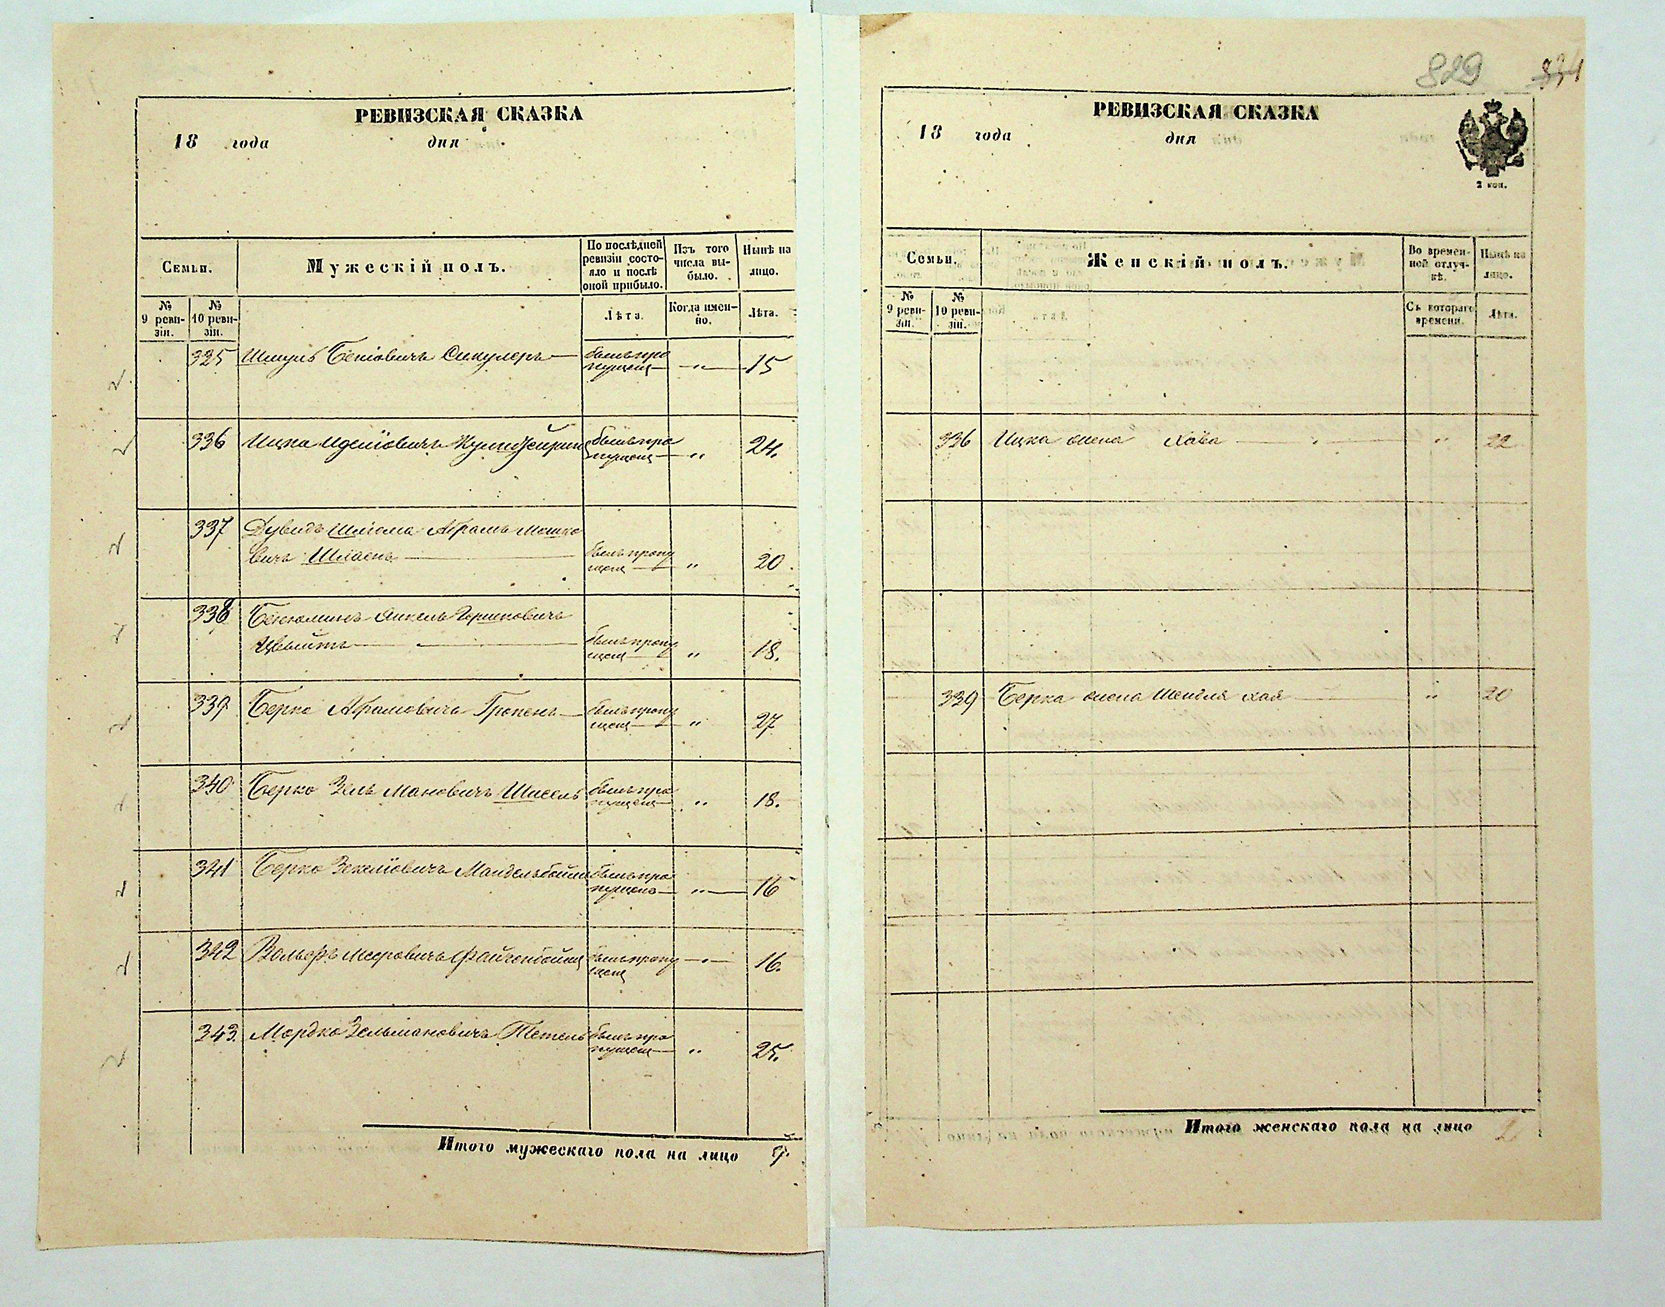 РЕВИЗСКАЯ СКАЗКА
18 года дня
Семьи.
Мужескій полъ.
По послѣдней ревизіи состояло и послѣ оной прибыло.
Изъ того числа выбыло.
Нынѣ на лицо.
№ 9 ревизіи.
№ 10 ревизіи.
Лѣта.
Когда именно.
Лѣта.
335 Шмуль Беніовичъ былъ про 15
пущенъ
336 Ицка былъ про 24.
пущенъ
337 Дувидъ Шлiома Абрамъ Мошко
вичъ былъ пропу 20
щенъ
338 Бенюминъ Янкель Гершковичъ
былъ пропу 18.
щенъ
339 Берко Абрамовичъ былъ пропу 27
щенъ
340 Берко Зельмановичъ былъ про 18.
пущенъ
341 Берко Мандельбоймъ былъ про 16
пущенъ
342 Вольфъ Мееровичъ былъ пропу 16.
щенъ
343. Мордко Зельмановичъ Тетель былъ про 25.
пущенъ
Итого мужескаго пола на лицо 9.
829 834
РЕВИЗСКАЯ СКАЗКА
18 года дня
2 коп.
Семьи.
Женскій полъ.
Во временной отлучкѣ.
Нынѣ на лицо.
№ 9 ревизіи.
№ 10 ревизіи.
Съ котораго времени.
Лѣта.
336 Ицка жена Хава " 22
339 Берка жена Шейндля Хая " 20
Итого женскаго пола на лицо 2